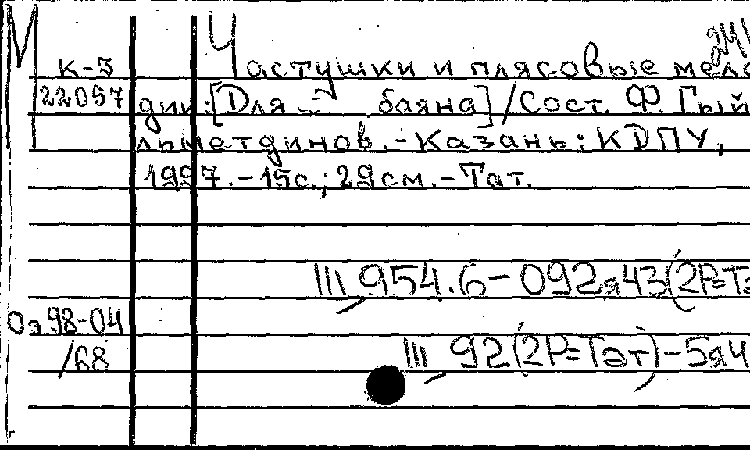 М
Частушки и плясовые мело
К-5
22057
дии: [Для баяна] / Сост. Ф. Гый
льметдинов. - Казань: КДПУ,
1997. - 15с.; 29см. - Тат.
Ш 954.6-092я43(2Р=Та
Оэ 98-04
/68
Ш 92(2Р=Тат)-5я4